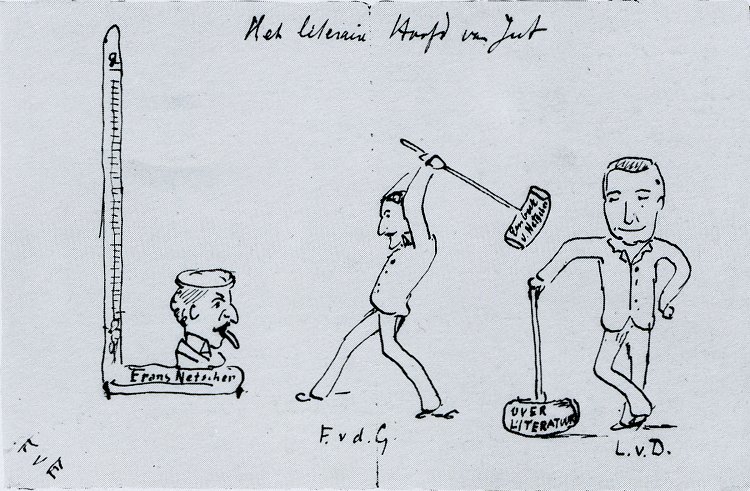 Het literair Hoofd van Jut
Frans Netscher
Een boek
v. Netscher
OVER
LITERATUUR
F. v. d. G.
L. v. D.
F v E